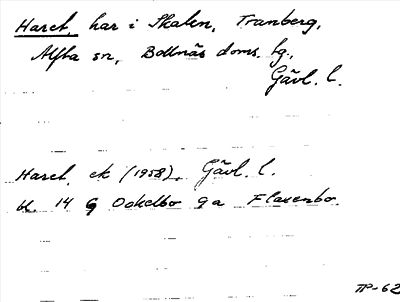 Haret, har i Skalen, Tranberg,
Alfta sn, Bollnäs doms. lg.,
Gävl. l.
Haret, ek (1958), Gävl. l.
bl. 14 G Ockelbo ga Flaxenbo.
TP-62